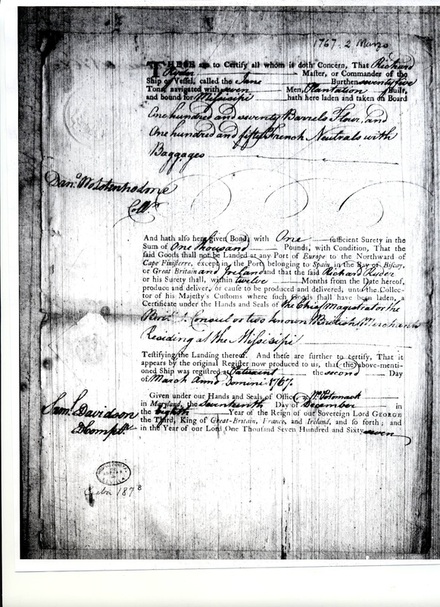 1767 - 2 Marzo
THESE are to Certify all whom it doth Concern, That Richard
Ryder Master, or Commander of the
Ship or Vessel, called the Jane Burthen seventy five
Tons, navigated with seven Men, Plantation Built,
and bound for Missisipi hath here laden and taken on Board
One hundred and seventy Barrels Flour, and
One hundred and fifty French Neutrals with
Baggages
Danl. Wolstenholme
Collr.
And hath also here given Bond, with One sufficient Surety in the
Sum of One thousand Pounds, with Condition, That the
said Goods shall not be Landed at any Port of Europe to the Northward of
Cape Finisterre, except in the Ports belonging to Spain in the Bay of Biscay,
or Great Britain and Ireland and that the said Richard Ryder
or his Surety shall, within twelve Months from the Date hereof,
produce and deliver, or cause to be produced and delivered, unto the Collec-
tor of his Majesty's Customs where such Goods shall have been laden, a
Certificate under the Hands and Seals of the Chief Magistrate or the
Consul or two known British Merchants
Residing at the Missisipi
Testifying the Landing thereof. And these are further to certify, That it
appears by the original Register now produced to us, that the above-menti-
oned Ship was registered at the second Day
of March Anno Domini 1767.
Given under our Hands and Seals of Office, at Nh. Potomack
in Maryland, the Seventeenth Day of December in
the Eighth Year of the Reign of our Sovereign Lord GEORGE
the Third, King of Great-Britain, France, and Ireland, and so forth; and
in the Year of our Lord One Thousand Seven Hundred and Sixty seven
Saml. Davidson
DCompr.